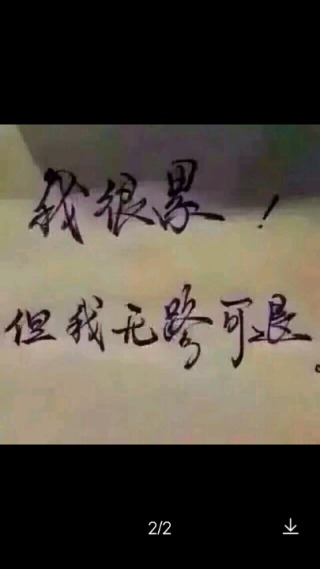 我很累！
但我无路可退。
2/2